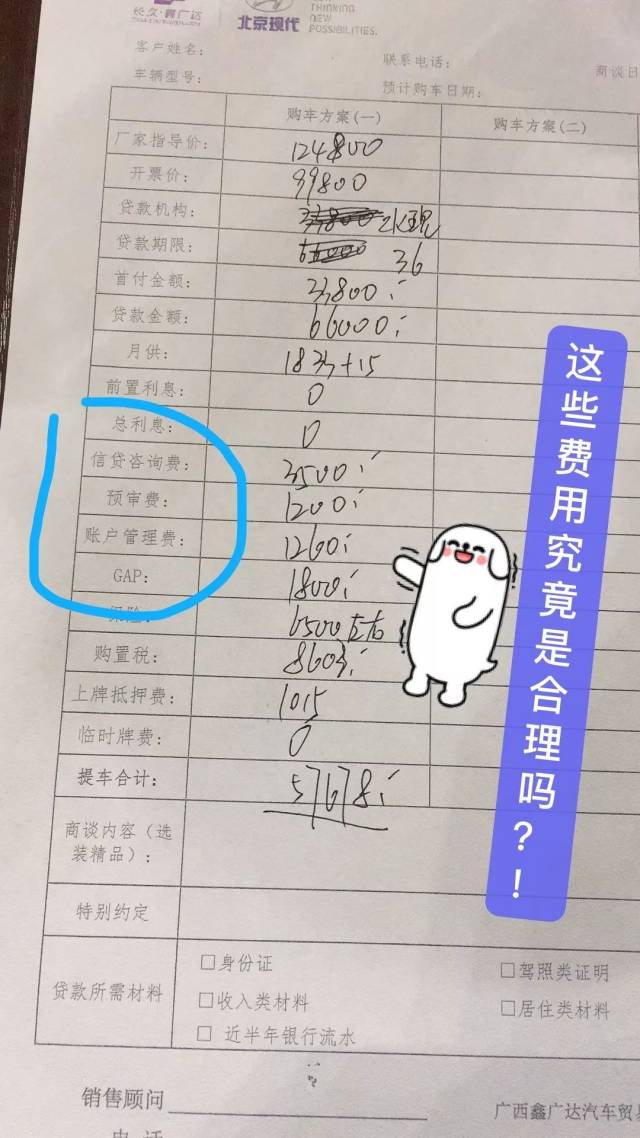 长久·鑫广达
北京现代
THINKING
NEW
POSSIBILITIES.
客户姓名：
联系电话：
商谈日
车辆型号：
预计购车日期：
购车方案(一)
购车方案(二)
厂家指导价： 124800
开票价： 99800
贷款机构：
贷款期限： 36
首付金额： 33800
贷款金额： 66000
月供： 1833+15
前置利息： 0
总利息： 0
信贷咨询费： 3500
预审费： 1200
账户管理费： 1260
GAP： 1800
保险： 6500左右
购置税： 8603
上牌抵押费： 1015
临时牌费： 0
提车合计： 57678
商谈内容（选
装精品）：
特别约定
贷款所需材料
□身份证
□驾照类证明
□收入类材料
□居住类材料
□ 近半年银行流水
销售顾问
广西鑫广达汽车贸易
电 话
这些费用究竟是合理吗？！